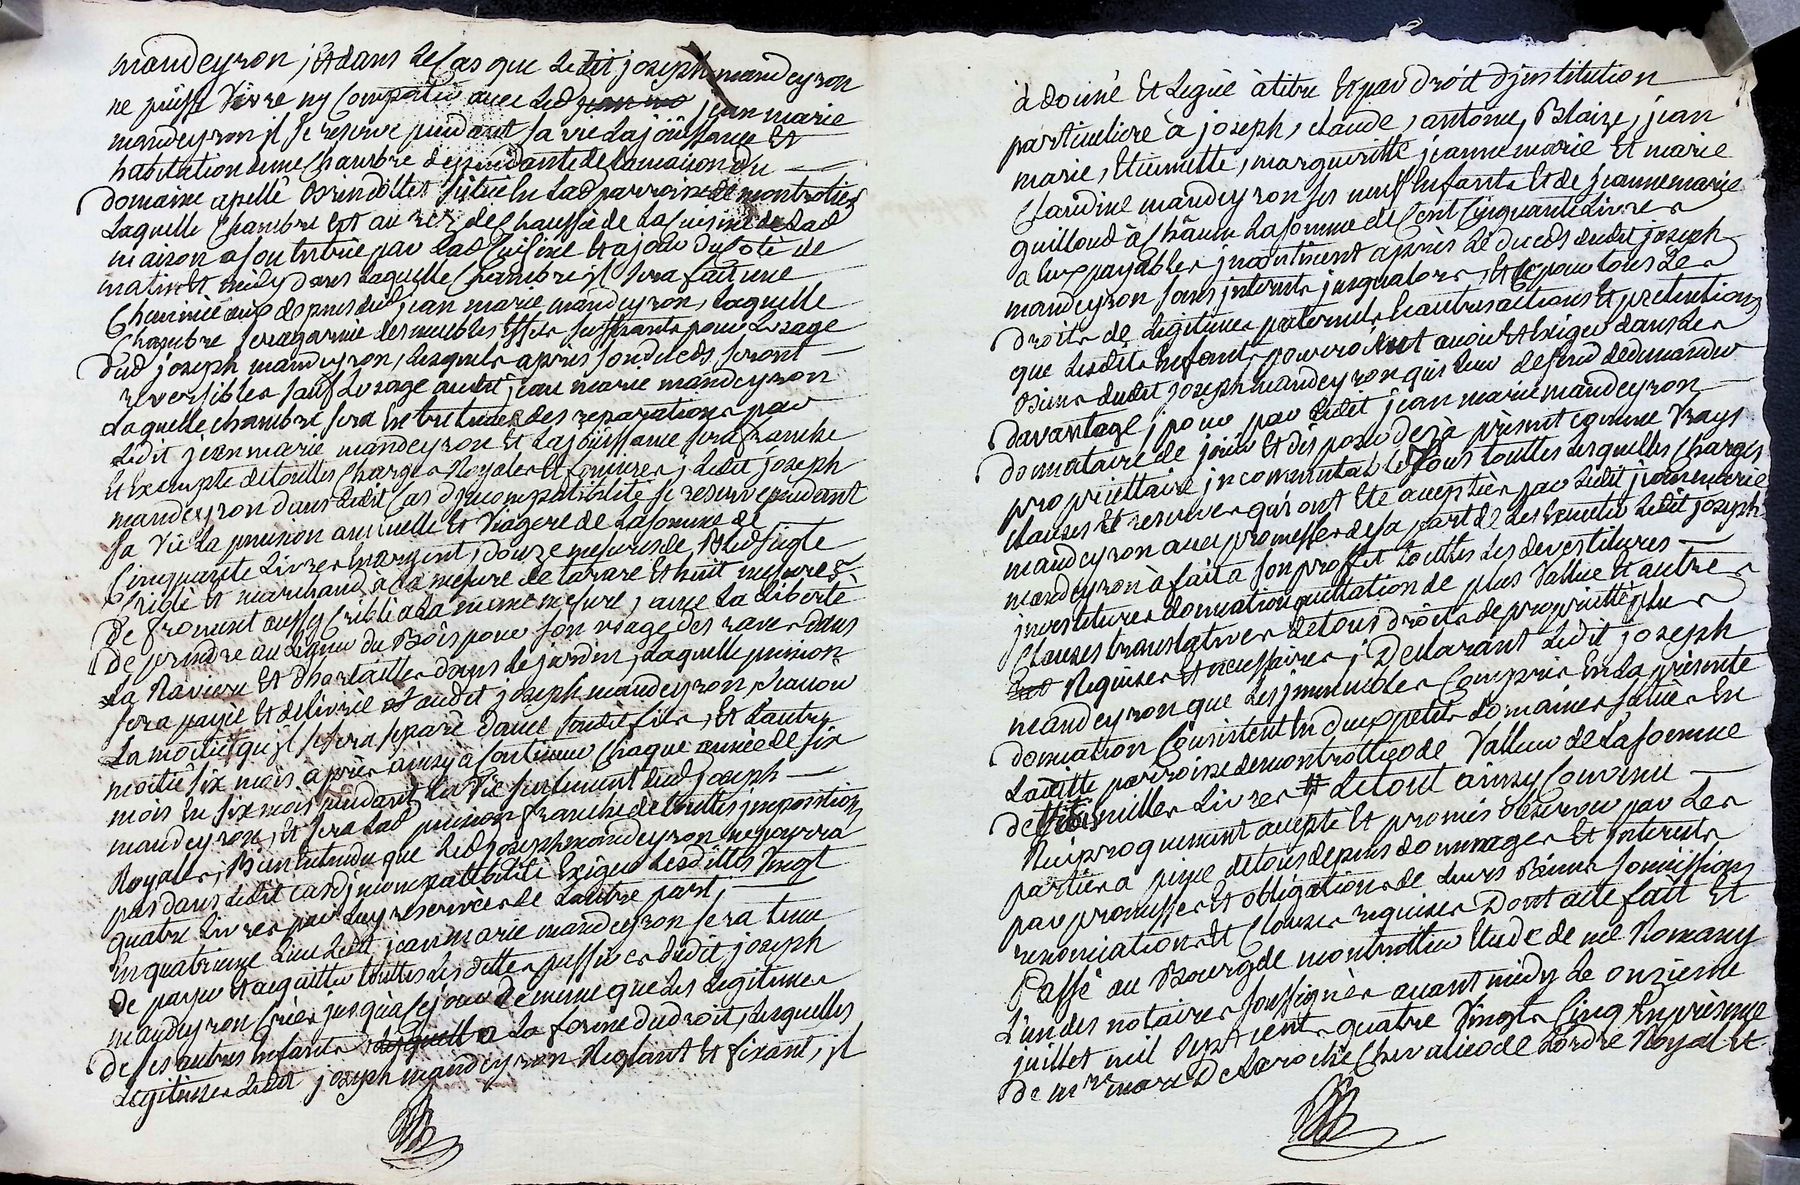 mandeyron ; Et dans Le Cas que Ledit joseph mandeyron
ne puisse Vivre ny Compatir avec Led jean marie
mandeyron il se reserve pendant sa vie La joüissance Et
habitation d'une Chambre dependante de la maison du
domaine apellé situé En Lad parroisse de montrotier
Laquelle Chambre Est au rez de Chaussée de La Cuisine de Lad
maison a son Entrée par Lad Cuisine Et a jour du Coté de
matin Et midy dans Laquelle Chambre il sera fait une
Cheminée aux depens dud jean marie mandeyron, Laquelle
Chambre sera garnie des meubles Effets suffisants pour Lusage
dud joseph mandeyron, Lesquels apres son deceds seront
reversibles sauf Lusage audit jean marie mandeyron
Laquelle chambre sera Entretenüe des reparations par
Ledit jean marie mandeyron Et La joüissance sera franche
Et Exempte de touttes Charges Royales Et foncieres, Ledit joseph
mandeyron dans Ledit Cas d'jncompatibilité se reserve pendant
sa vie La pension annuelle Et Viagere de La somme de
Cinquante Livres En argent, douze mesures de Bled seigle
Criblé et marchand a La mesure de tarare Et huit mesures
de froment aussy Criblé a La même mesure, avec La Liberté
de prendre au Leignier du Bois pour son usage des raves dans
La Raviere Et d'hortailles dans Le jardin, Laquelle pension
sera payée Et delivrée audit joseph mandeyron, scavoir
La moitié qu'jl se sera separé d'avec sondit fils, Et Lautre
moitié six mois après ainsy à Continuer Chaque année de six
mois En six mois pendant La Vie seulement dud joseph
mandeyron, Et sera Lad pension franche de touttes jmpositions
Royalles, Bien Entendu que Led joseph mandeyron ne pourra
pas dans Ledit cas d'jncompatibilité Exiger Lesdittes Vingt
quatre Livres par Luy reservées de Lautre part,
En quatrieme Lieu Ledit jean marie mandeyron sera tenu
de payer Et acquitter touttes Les dettes passives dudit joseph
mandeyron Créés jusqu'a Ce jour de meme que Les Legitimes
de ses autres Enfants a La forme du droit, Lesquelles
Legitimes Ledit joseph mandeyron Reglant Et fixant, jl
à donné Et Legué à titre Et par droit d'jnstitution
particuliere à joseph, claude, antoine, Blaize, jean
marie, Etiennette, margueritte jeanne marie Et marie
Claudine mandeyron ses neuf Enfants Et de jeanne marie
guilloud à Châcun La somme de Cent Cinquante Livres
a Eux payables jncontinent après Le deceds dudit joseph
mandeyron sans jnterets jusqualors, Et Ce pour tous Les
droits de Legitimes paternels Et autres actions Et pretentions
que Lesdits Enfants pourroient avoir Et Exiger dans Les
Biens dudit joseph mandeyron qui Leur defend de demander
davantage ; pour par Ledit jean marie mandeyron
donnataire de jouir Et disposer dès à présent comme Vray
propriettaire jncommutable sous touttes Lesquelles Charges
Clauses Et reserves qui ont Eté acceptées par Ledit jean marie
mandeyron avec promesses de sa part de Les Executer Ledit joseph
mandeyron à fait a son proffit touttes Les devestitures
jnvestitures donnation quittation de plus Vallue Et autres
Clauses translatives de tous droits de proprietté plus
Requises Et necessaires ; Declarant Ledit joseph
mandeyron que Les jmmeubles Compris En La présente
donnation Consistent En deux petits domaines situés En
Laditte parroisse de montrottier de Valleur de La somme
de mille Livres # Le tout ainsy Convenu
Reciproquement accepté Et promis observer par Les
parties a peine de tous depens dommages Et jnterets
par promesses Et obligations de Leurs Biens soumissions
renonciations Et Clauses requises Dont acte fait Et
Passé au Bourg de montrottier Etude de me Romany
L'un des notaires soussignés avant midy Le onzieme
juillet mil sept cents quatre Vingts Cinq En présence
de mre marc Delaroche Chevalier de Lordre Royal Et